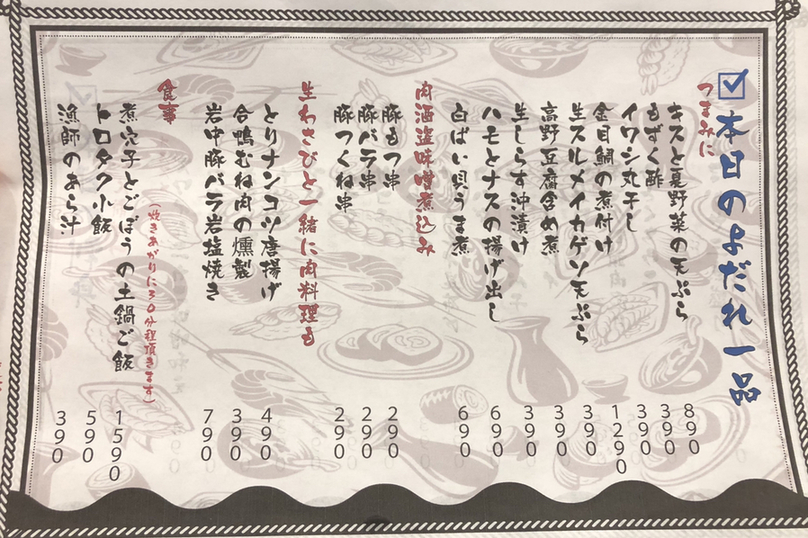 本日のよだれ一品
つまみに
キスと夏野菜の天ぷら 890
もずく酢 390
イワシ丸干し 390
金目鯛の煮付け 1290
生スルメイカゲソ天ぷら 390
高野豆腐含め煮 390
生しらす沖漬け 390
ハモとナスの揚げ出し 690
白ばい貝うま煮 690
肉酒盗味噌煮込み
豚もつ串 290
豚バラ串 290
豚つくね串 290
生わさびと一緒に肉料理も
とりナンコツ唐揚げ 490
合鴨むね肉の燻製 390
岩中豚バラ岩塩焼き 790
食事
(炊きあがりに30分程頂きます)
煮穴子とごぼうの土鍋ご飯 1590
トロタク小飯 590
漁師のあら汁 390